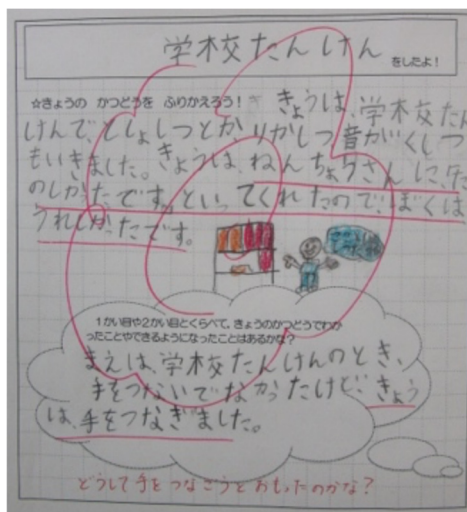 学校たんけん をしたよ!
☆きょうの かつどうを ふりかえろう! きょうは、学校たん
けんで、としょしつとか りかしつ音がくしつ
もいきました。きょうは、ねんちょうさんに、た
のしかたです。といってくれたので、ぼくは
うれしかったです。
1かい目や2かい目とくらべて、きょうのかつどうでわか
ったことやできるようになったことはあるかな?
まえは、学校たんけんのとき、
手をつないでなかったけど、きょう
は、手をつなぎました。
どうして手をつなごうとおもったのかな?